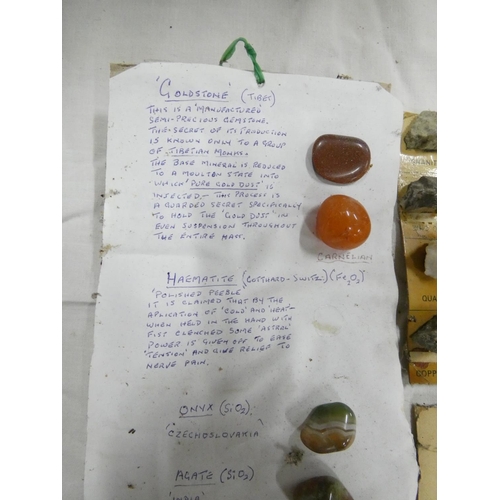 'GOLDSTONE' (TIBET)
THIS IS A 'MANUFACTURED'
SEMI-PRECIOUS GEMSTONE.
THE SECRET OF ITS PRODUCTION
IS KNOWN ONLY TO A GROUP
OF TIBETIAN MONKS.
THE BASE MINERAL IS REDUCED
TO A MOULTON STATE INTO
WHICH 'PURE GOLD DUST' IS
INJECTED,- THIS PROCESS IS
A GUARDED SECRET SPECIFICALLY
TO HOLD THE 'GOLD DUST' IN
EVEN SUSPENSION THROUGHOUT
THE ENTIRE MASS.
CARNELIAN
HAEMATITE (GOTTHARD-SWITZ.) (Fe2O3)
'POLISHED PEEBLE'
IT IS CLAIMED THAT BY THE
APPLICATION OF 'COLD' AND 'HEAT'-
WHEN HELD IN THE HAND WITH
FIST CLENCHED SOME 'ASTRAL'
POWER IS GIVEN OFF TO EASE
'TENSION' AND GIVE RELIEF TO
NERVE PAIN.
ONYX (SiO2).
'CZECHOSLOVAKIA'
AGATE (SiO2)
'INDIA'
QUA
COPP